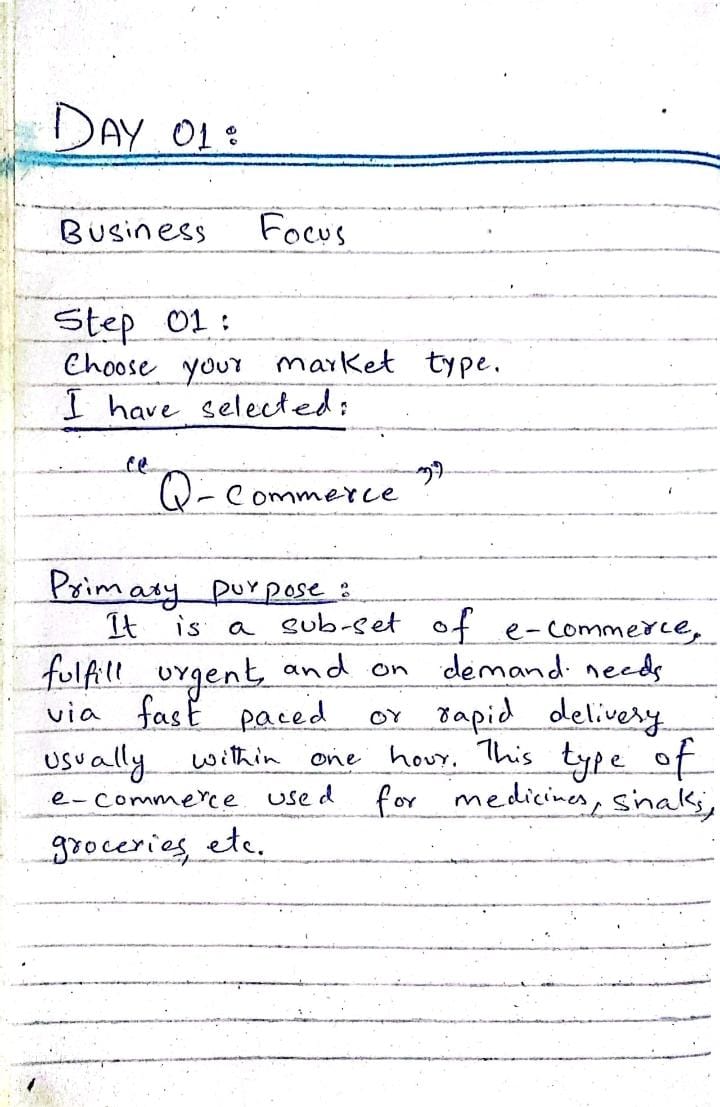 DAY 01:
Business Focus
Step 01:
Choose your market type.
I have selected:
"Q-Commerce"
Primary purpose:
It is a sub-set of e-commerce,
fulfill urgent, and on demand needs
via fast paced or rapid delivery
usually within one hour. This type of
e-commerce used for medicines, snaks,
groceries, etc.